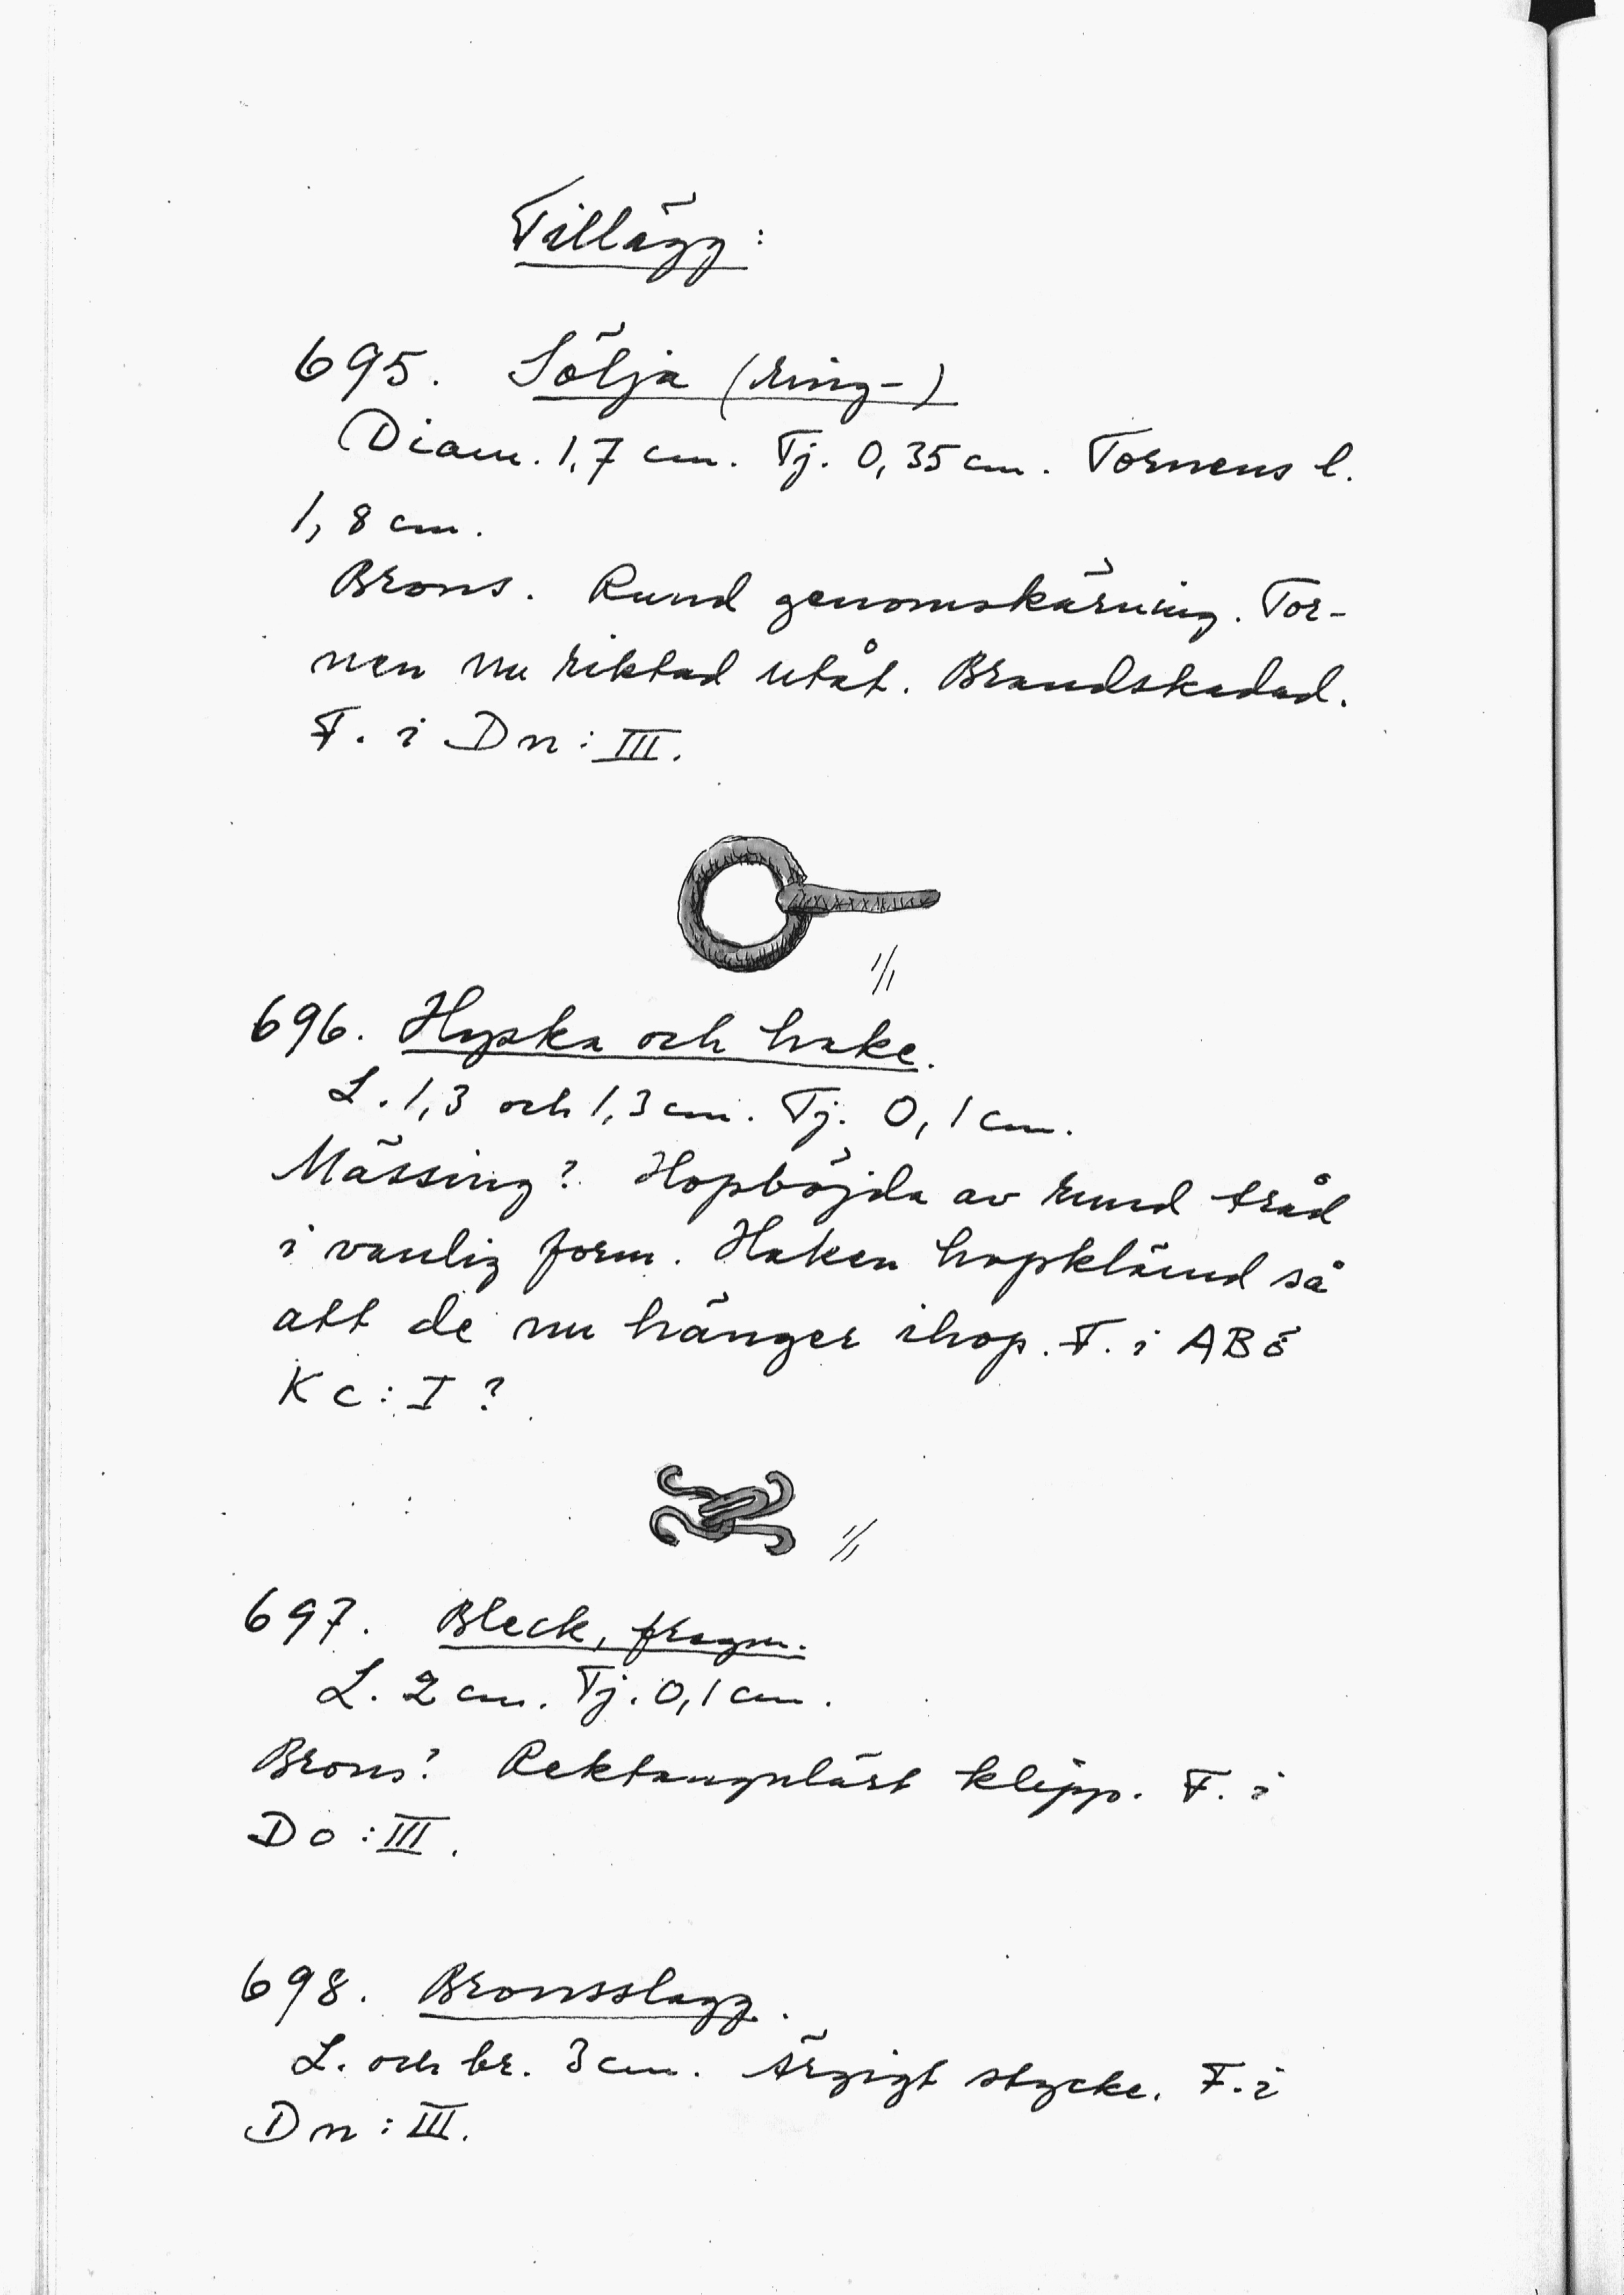 Tillägg:
695. Sölja (ring-)
Diam. 1,7 cm. Tj. 0,35 cm. Tornens l.
1,8 cm.
Brons. Rund genomskärning. Tor-
nen nu riktad utåt. Brandskadad.
F. i Dn: III.
1/1
696. Hyska och hake.
L. 1,3 och 1,3 cm. Tj. 0,1 cm.
Mässing? Hopböjda av rund tråd
i vanlig form. Haken hopklämd så
att de nu hänger ihop. F. i ABÖ
Kc: I?
1/1
697. Bleck, fragm.
L. 2 cm. Tj. 0,1 cm.
Brons? Rektangulärt klipp. F. i
Do: III.
698. Bronsslagg.
L. och br. 3 cm. Ärgigt stycke. F. i
Dn: III.